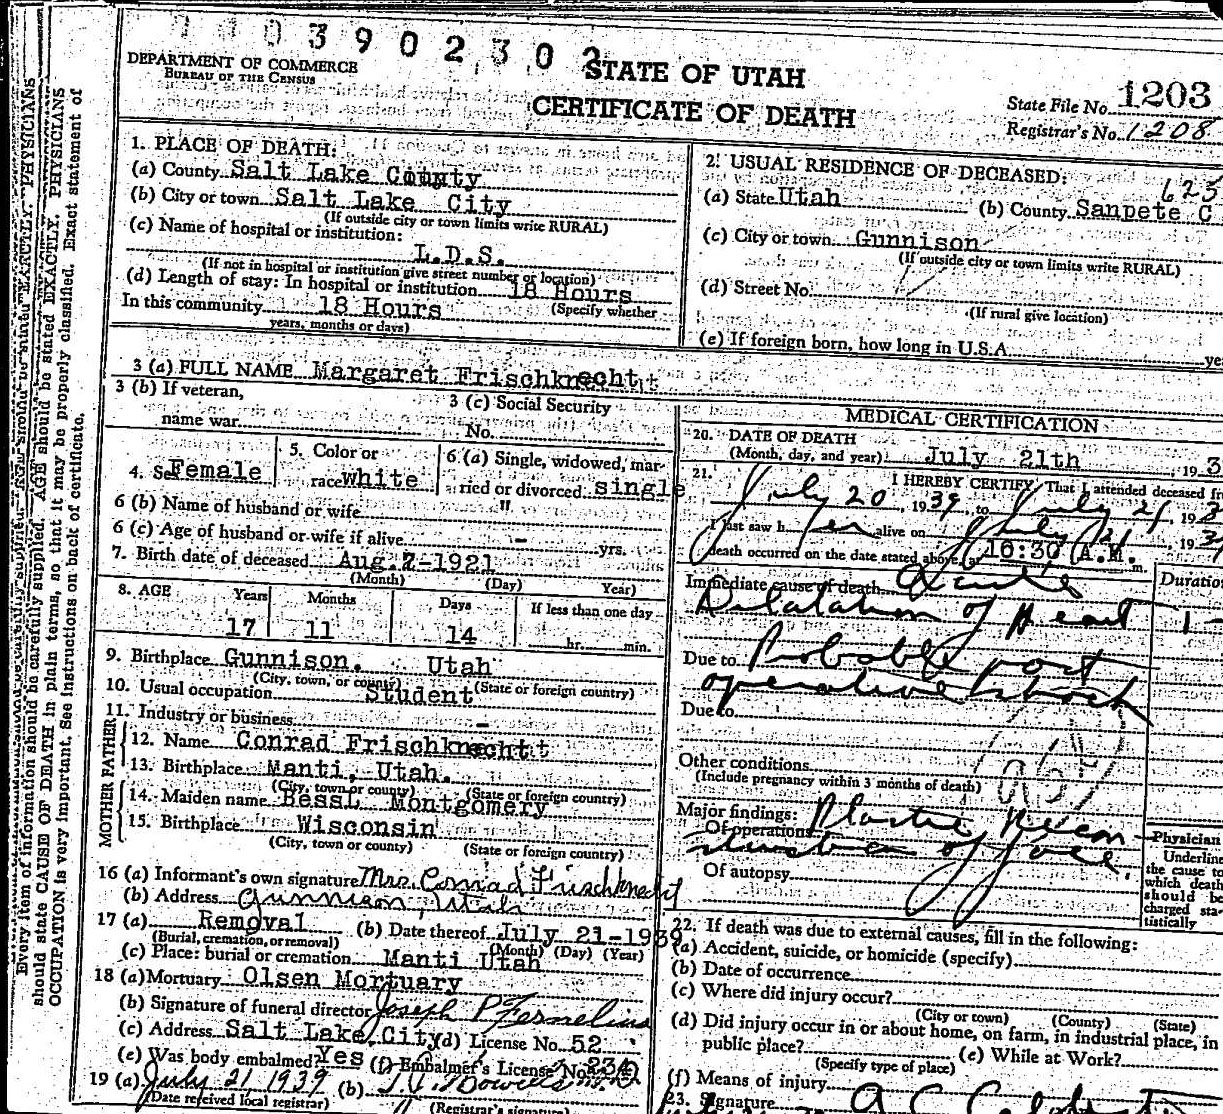 3902302
DEPARTMENT OF COMMERCE
BUREAU OF THE CENSUS
STATE OF UTAH
CERTIFICATE OF DEATH
State File No. 1203
Registrar's No. 1208
1. PLACE OF DEATH:
(a) County Salt Lake County
(b) City or town Salt Lake City
(If outside city or town limits write RURAL)
(c) Name of hospital or institution:
L.D.S.
(If not in hospital or institution give street number or location)
(d) Length of stay: In hospital or institution 18 Hours
(Specify whether
In this community 18 Hours
years, months or days)
2. USUAL RESIDENCE OF DECEASED:
625
(a) State Utah (b) County Sanpete C
(c) City or town Gunnison
(If outside city or town limits write RURAL)
(d) Street No.
(If rural give location)
(e) If foreign born, how long in U.S.A. ye
3 (a) FULL NAME Margaret Frischknecht
3 (b) If veteran,
name war
3 (c) Social Security
No.
4. Sex Female
5. Color or
race white
6 (a) Single, widowed, mar-
ried or divorced single
6 (b) Name of husband or wife "
6 (c) Age of husband or wife if alive - yrs.
7. Birth date of deceased Aug. 7-1921
(Month) (Day) Year)
8. AGE Years Months Days If less than one day
17 11 14 hr. min.
9. Birthplace Gunnison. Utah
(City, town, or county) (State or foreign country)
10. Usual occupation Student
11. Industry or business -
FATHER
12. Name Conrad Frischknecht
13. Birthplace Manti, Utah.
(City, town or county) (State or foreign country)
MOTHER
14. Maiden name BessL Montgomery
15. Birthplace Wisconsin
(City, town or county) (State or foreign country)
16 (a) Informant's own signature Mrs. Conrad Frischknecht
(b) Address Gunnison, Utah
17 (a) Removal (b) Date thereof July 21-1939
(Burial, cremation, or removal) (Month) (Day) (Year)
(c) Place: burial or cremation Manti Utah
18 (a) Mortuary Olsen Mortuary
(b) Signature of funeral director Joseph P Fernelius
(c) Address Salt Lake City (d) License No. 52
(e) Was body embalmed? Yes (f) Embalmer's License No. 234
19 (a) July 21 1939 (b)
(Date received local registrar) (Registrar's signature)
MEDICAL CERTIFICATION
20. DATE OF DEATH
(Month, day, and year) July 21th 193
21. I HEREBY CERTIFY, That I attended deceased fr
July 20, 1939, to July 21, 193
I last saw her alive on July 21, 193
death occurred on the date stated above, at 10:30 A.M. m.
Immediate cause of death Acute
Dilatation of Heart
Duration
1-
Due to Probable post
operative shock
Due to
Other conditions
(Include pregnancy within 3 months of death)
Major findings:
Of operations Plastic Recon
struction of face.
Of autopsy
Physician
Underline
the cause to
which death
should be
charged sta-
tistically
22. If death was due to external causes, fill in the following:
(a) Accident, suicide, or homicide (specify)
(b) Date of occurrence
(c) Where did injury occur?
(City or town) (County) (State)
(d) Did injury occur in or about home, on farm, in industrial place, in
public place? (e) While at Work?
(Specify type of place)
(f) Means of injury
23. Signature
Every item of information should be carefully supplied. AGE should be stated EXACTLY. PHYSICIANS
should state CAUSE OF DEATH in plain terms, so that it may be properly classified. Exact statement of
OCCUPATION is very important. See instructions on back of certificate.